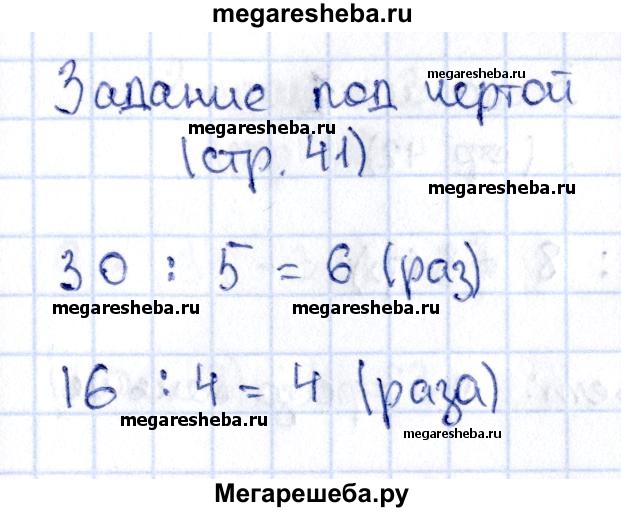 megaresheba.ru
megaresheba.ru
Задание под чертой
megaresheba.ru
(стр. 41)
megaresheba.ru
30 : 5 = 6 (раз)
megaresheba.ru megaresheba.ru
16 : 4 = 4 (раза)
megaresheba.ru
megaresheba.ru
Мегарешеба.ру